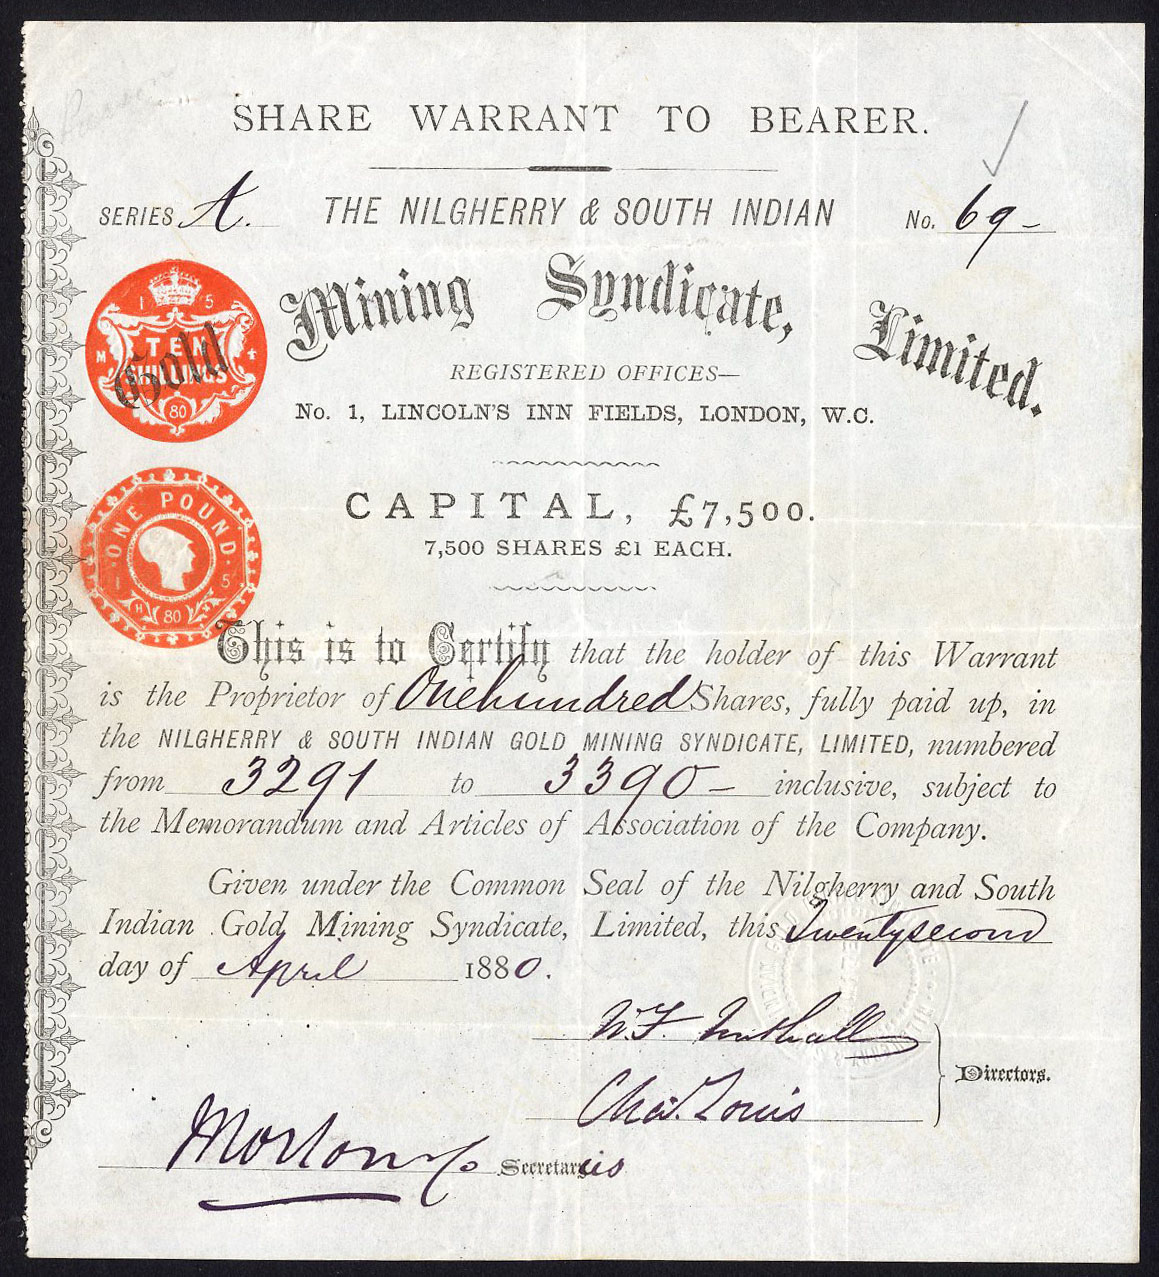 SHARE WARRANT TO BEARER.
SERIES A. THE NILGHERRY & SOUTH INDIAN No. 69-
Gold Mining Syndicate, Limited.
15
TEN
M 4
SHILLINGS
80
REGISTERED OFFICES—
No. 1, LINCOLN'S INN FIELDS, LONDON, W.C.
CAPITAL, £7,500.
7,500 SHARES £1 EACH.
ONE POUND
1 5
80
This is to Certify that the holder of this Warrant
is the Proprietor of One hundred Shares, fully paid up, in
the NILGHERRY & SOUTH INDIAN GOLD MINING SYNDICATE, LIMITED, numbered
from 3291 to 3390- inclusive, subject to
the Memorandum and Articles of Association of the Company.
Given under the Common Seal of the Nilgherry and South
Indian Gold Mining Syndicate, Limited, this Twentysecond
day of April 1880.
W. F. Nuthall
Chas. Louis
Directors.
Morton & Co Secretaries